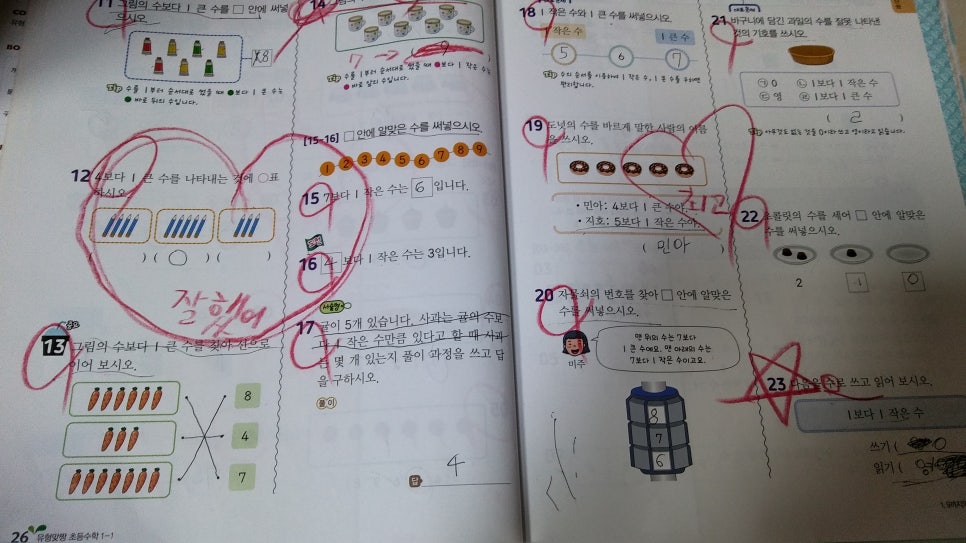 11 그림의 수보다 1 큰 수를 □ 안에 써넣
8
수를 1부터 순서대로 썼을 때 ●보다 1 큰 수는
● 바로 뒤의 수입니다.
12 4보다 1 큰 수를 나타내는 것에 ○표
하시오.
( ) ( ○ ) ( )
잘했어
13 그림의 수보다 1 큰 수를 찾아 선으로
이어 보시오.
8
4
7
26 유형맞짱 초등수학 1-1
14
7 → 9
수를 1부터 순서대로 썼을 때 ●보다 1 작은 수는
● 바로 앞의 수입니다.
[15~16] □ 안에 알맞은 수를 써넣으시오.
1 2 3 4 5 6 7 8 9
15 7보다 1 작은 수는 6 입니다.
16 4 보다 1 작은 수는 3입니다.
서술형
17 귤이 5개 있습니다. 사과는 귤의 수보
다 1 작은 수만큼 있다고 할 때 사과
는 몇 개 있는지 풀이 과정을 쓰고 답
을 구하시오.
풀이
답 4
18 1 작은 수와 1 큰 수를 써넣으시오.
1 작은 수 1 큰 수
5 6 7
수의 순서를 이용하여 1 작은 수, 1 큰 수를 구하면
편리합니다.
19 도넛의 수를 바르게 말한 사람의 이름
을 쓰시오.
• 민아: 4보다 1 큰 수야.
• 지호: 5보다 1 작은 수야.
최고
( 민아 )
20 자물쇠의 번호를 찾아 □ 안에 알맞은
수를 써넣으시오.
맨 위의 수는 7보다
1 큰 수예요. 맨 아래의 수는
7보다 1 작은 수이고요.
미주
8
7
6
21 바구니에 담긴 과일의 수를 잘못 나타낸
것의 기호를 쓰시오.
㉠ 0 ㉡ 1보다 1 작은 수
㉢ 영 ㉣ 1보다 1 큰 수
( ㄹ )
아무것도 없는 것을 0이라 쓰고 영이라고 읽습니다.
22 초콜릿의 수를 세어 □ 안에 알맞은
수를 써넣으시오.
2 1 0
23 다음을 수로 쓰고 읽어 보시오.
1보다 1 작은 수
쓰기 ( 0
읽기 ( 영